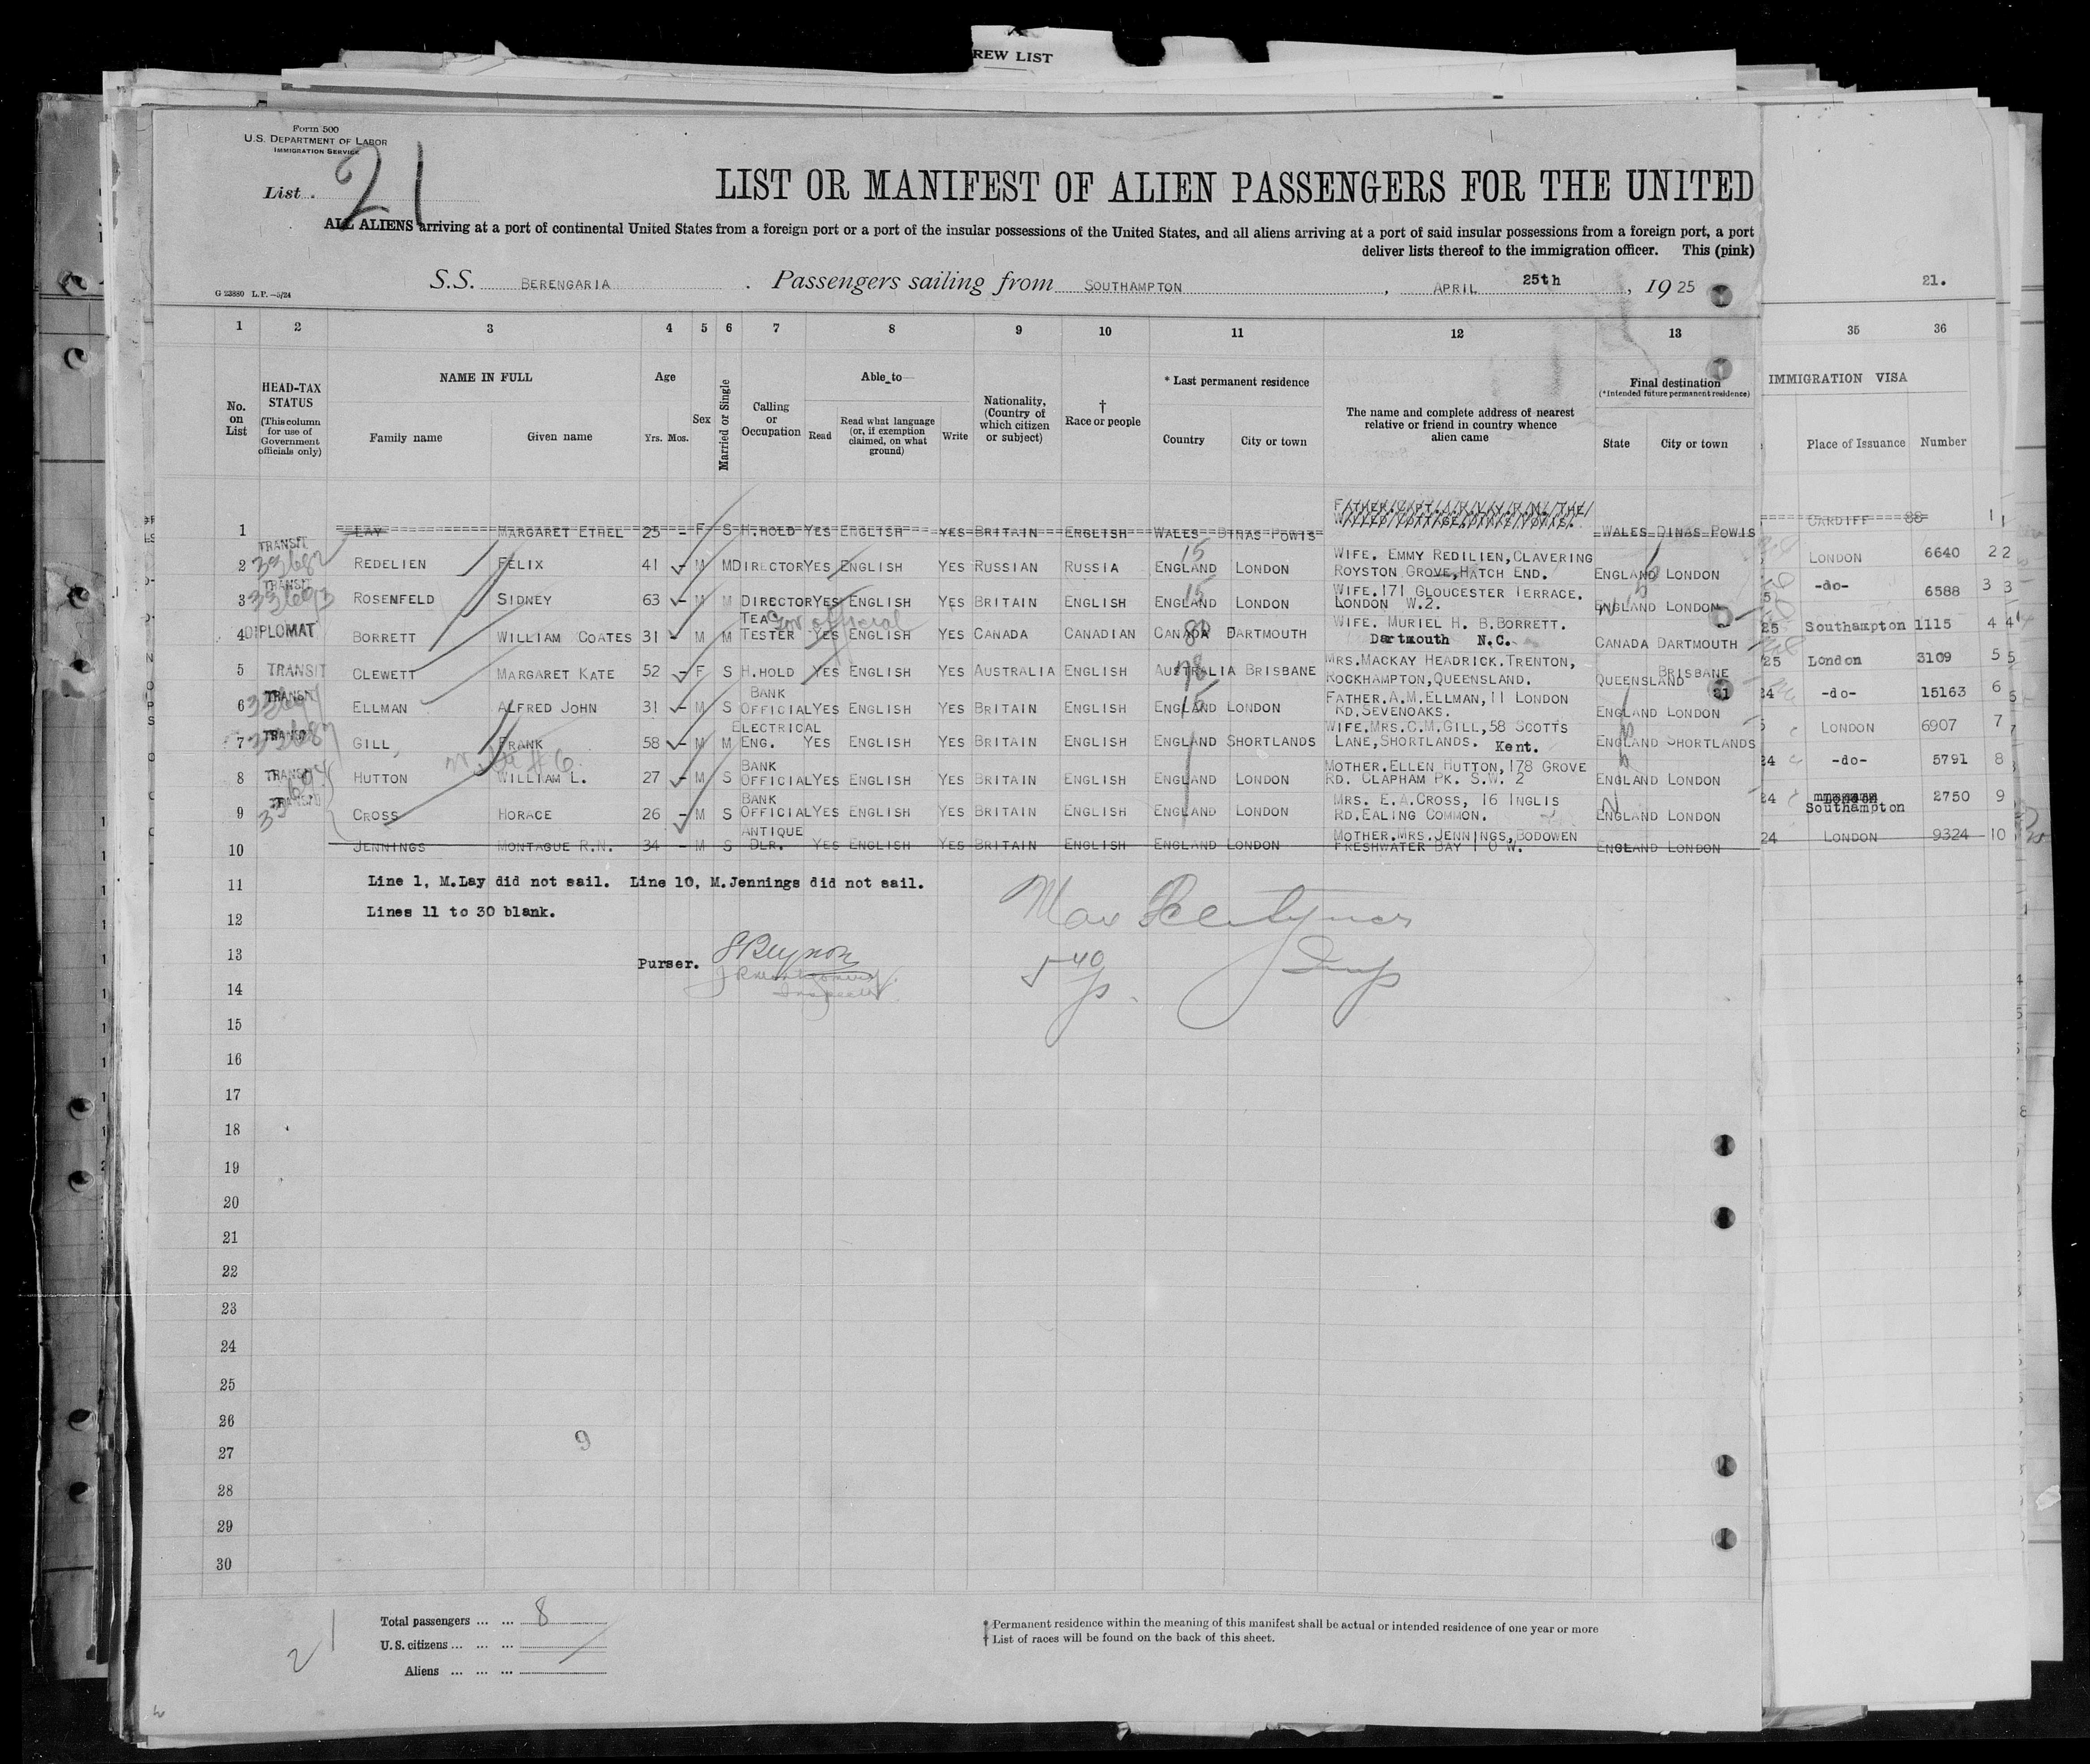 REW LIST
Form 500
U.S. DEPARTMENT OF LABOR
IMMIGRATION SERVICE
List 21
LIST OR MANIFEST OF ALIEN PASSENGERS FOR THE UNITED
ALL ALIENS arriving at a port of continental United States from a foreign port or a port of the insular possessions of the United States, and all aliens arriving at a port of said insular possessions from a foreign port, a port
deliver lists thereof to the immigration officer. This (pink)
S.S. BERENGARIA. Passengers sailing from SOUTHAMPTON, APRIL 25th, 1925
21.
G 23880 L.P.—5/24
1 2 3 4 5 6 7 8 9 10 11 12 13 35 36
No. on List
HEAD-TAX STATUS
(This column for use of Government officials only)
NAME IN FULL
Family name Given name
Age
Yrs. Mos.
Sex
Married or Single
Calling or Occupation
Able to
Read
Read what language (or, if exemption claimed, on what ground)
Write
Nationality, (Country of which citizen or subject)
† Race or people
* Last permanent residence
Country City or town
The name and complete address of nearest relative or friend in country whence alien came
Final destination
(*Intended future permanent residence)
State City or town
IMMIGRATION VISA
Place of Issuance Number
1 LAY MARGARET ETHEL 25 - F S H.HOLD YES ENGLISH YES BRITAIN ENGLISH WALES DINAS POWIS WALES DINAS POWIS CARDIFF 88 1
2 TRANSIT REDELIEN FELIX 41 - M M DIRECTOR YES ENGLISH YES RUSSIAN RUSSIA ENGLAND LONDON WIFE. EMMY REDILIEN, CLAVERING ROYSTON GROVE, HATCH END. ENGLAND LONDON LONDON 6640 2
3 TRANSIT ROSENFELD SIDNEY 63 - M M DIRECTOR YES ENGLISH YES BRITAIN ENGLISH ENGLAND LONDON WIFE. 171 GLOUCESTER TERRACE. LONDON W.2. ENGLAND LONDON -do- 6588 3
4 DIPLOMAT BORRETT WILLIAM COATES 31 M M TEA TESTER Gov official YES ENGLISH YES CANADA CANADIAN CANADA DARTMOUTH WIFE. MURIEL H. B. BORRETT. Dartmouth N.C. CANADA DARTMOUTH Southampton 1115 4
5 TRANSIT CLEWETT MARGARET KATE 52 - F S H.HOLD YES ENGLISH YES AUSTRALIA ENGLISH AUSTRALIA BRISBANE MRS. MACKAY HEADRICK. TRENTON, ROCKHAMPTON, QUEENSLAND. QUEENSLAND BRISBANE London 3109 5
6 TRANSIT ELLMAN ALFRED JOHN 31 - M S BANK OFFICIAL YES ENGLISH YES BRITAIN ENGLISH ENGLAND LONDON FATHER. A.M. ELLMAN, 11 LONDON RD. SEVENOAKS. ENGLAND LONDON -do- 15163 6
7 TRANSIT GILL FRANK 58 - M M ELECTRICAL ENG. YES ENGLISH YES BRITAIN ENGLISH ENGLAND SHORTLANDS WIFE. MRS. C.M. GILL, 58 SCOTTS LANE, SHORTLANDS. Kent. ENGLAND SHORTLANDS LONDON 6907 7
8 TRANSIT HUTTON WILLIAM L. 27 - M S BANK OFFICIAL YES ENGLISH YES BRITAIN ENGLISH ENGLAND LONDON MOTHER. ELLEN HUTTON, 178 GROVE RD. CLAPHAM PK. S.W. 2 ENGLAND LONDON -do- 5791 8
9 TRANSIT CROSS HORACE 26 - M S BANK OFFICIAL YES ENGLISH YES BRITAIN ENGLISH ENGLAND LONDON MRS. E.A. CROSS, 16 INGLIS RD. EALING COMMON. ENGLAND LONDON Southampton 2750 9
10 JENNINGS MONTAGUE R.N. 34 - M S ANTIQUE DLR. YES ENGLISH YES BRITAIN ENGLISH ENGLAND LONDON MOTHER. MRS. JENNINGS, BODOWEN FRESHWATER BAY I O W. ENGLAND LONDON LONDON 9324 10
11 Line 1, M.Lay did not sail. Line 10, M.Jennings did not sail.
12 Lines 11 to 30 blank.
13 Purser.
14
15
16
17
18
19
20
21
22
23
24
25
26
27 9
28
29
30
Total passengers ... ... 8
U.S. citizens ... ... ...
Aliens ... ... ...
21
* Permanent residence within the meaning of this manifest shall be actual or intended residence of one year or more
† List of races will be found on the back of this sheet.